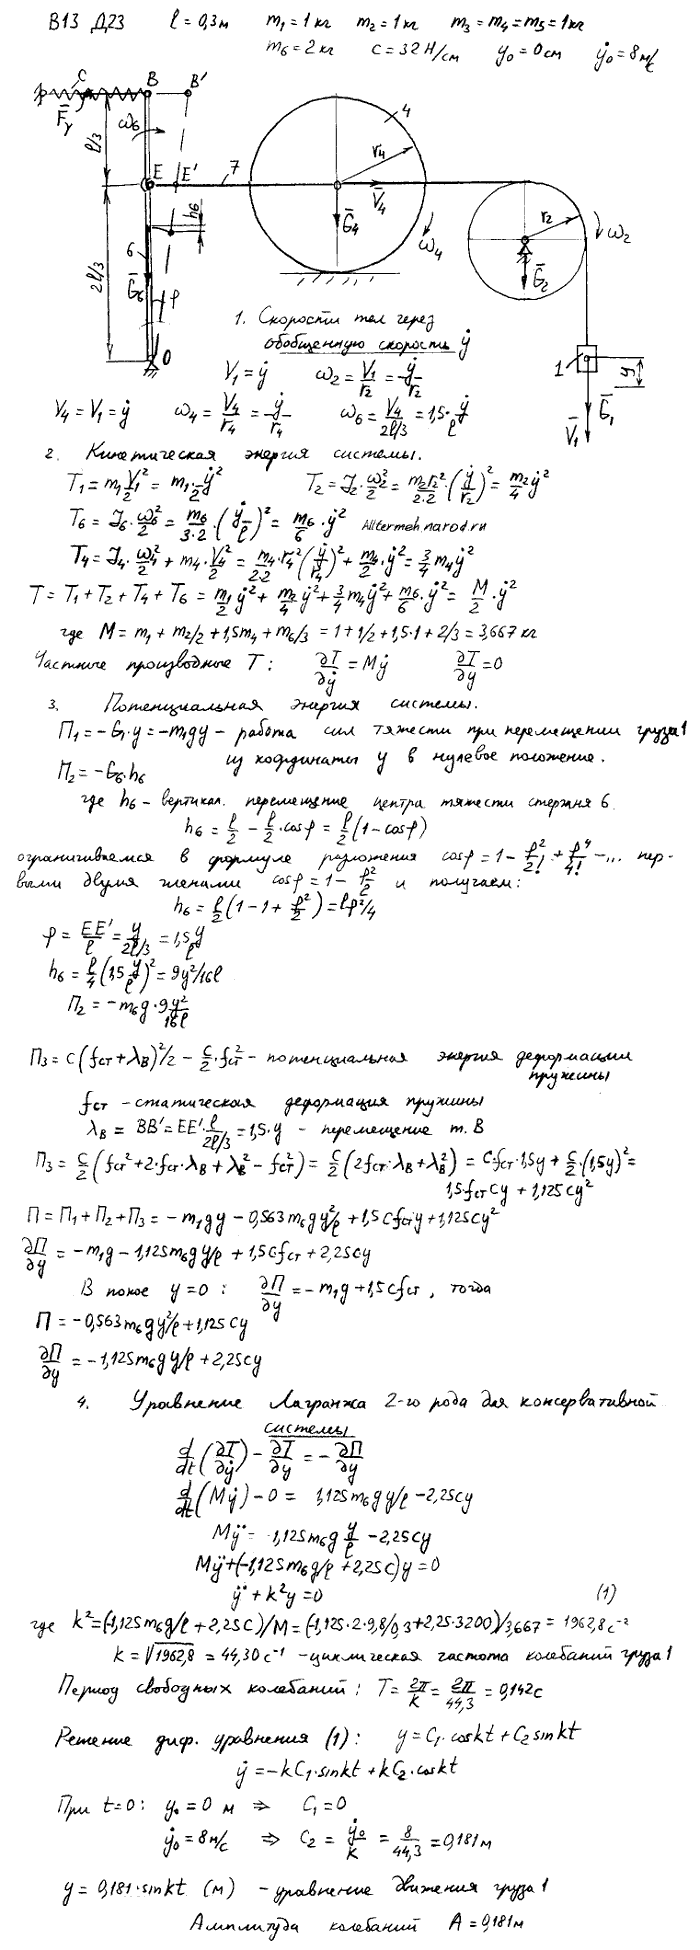 В13 Д23 l = 0,3м m₁ = 1 кг m₂ = 1 кг m₃ = m₄ = m₅ = 1 кг
m₆ = 2 кг c = 32 Н/см y₀ = 0 см ẏ₀ = 8 м/с
C B B'
F̄y
ω₆
l/3
E E' 7
4
r₄
V̄₄
Ḡ₄
ω₄
r₂
ω₂
Ḡ₂
h₆
6
Ḡ₆
φ
2l/3
O
1
y
V̄₁
Ḡ₁
1. Скорости тел через
обобщенную скорость ẏ
V₁ = ẏ ω₂ = V₁/r₂ = ẏ/r₂
V₄ = V₁ = ẏ ω₄ = V₄/r₄ = ẏ/r₄ ω₆ = V₄/(2l/3) = 1,5·ẏ/l
2. Кинетическая энергия системы.
T₁ = m₁V₁²/2 = m₁·ẏ²/2 T₂ = J₂·ω₂²/2 = m₂r₂²/(2·2)·(ẏ/r₂)² = m₂/4 ẏ²
T₆ = J₆·ω₆²/2 = m₆/(3·2)·(ẏ/l·l)² = m₆/6·ẏ² Alltermeh.narod.ru
T₄ = J₄·ω₄²/2 + m₄·V₄²/2 = m₄·r₄²/(2·2)(ẏ/r₄)² + m₄/2·ẏ² = 3/4 m₄ẏ²
T = T₁ + T₂ + T₄ + T₆ = m₁/2 ẏ² + m₂/4 ẏ² + 3/4 m₄ẏ² + m₆/6·ẏ² = M/2·ẏ²
где M = m₁ + m₂/2 + 1,5m₄ + m₆/3 = 1 + 1/2 + 1,5·1 + 2/3 = 3,667 кг
Частные производные T: ∂T/∂ẏ = Mẏ ∂T/∂y = 0
3. Потенциальная энергия системы.
П₁ = −G₁·y = −m₁gy – работа сил тяжести при перемещении груза 1
из координаты y в нулевое положение.
П₂ = −G₆·h₆
где h₆ – вертикал. перемещение центра тяжести стержня 6.
h₆ = l/2 − l/2·cosφ = l/2(1 − cosφ)
ограничиваемся в формуле разложения cosφ = 1 − φ²/2! + φ⁴/4! − ... пер-
выми двумя членами cosφ = 1 − φ²/2 и получаем:
h₆ = l/2(1 − 1 + φ²/2) = lφ²/4
φ = EE'/l = y/(2l/3) = 1,5 y/l
h₆ = l/4(1,5 y/l)² = 9y²/16l
П₂ = −m₆g·9y²/16l
П₃ = c(fст + λB)²/2 − c/2·fст² – потенциальная энергия деформации
пружины
fст – статическая деформация пружины
λB = BB' = EE'·l/(2l/3) = 1,5·y – перемещение т. B
П₃ = c/2(fст² + 2·fст·λB + λB² − fст²) = c/2(2fст·λB + λB²) = c·fст·1,5y + c/2·(1,5y)² =
1,5fстcy + 1,125cy²
П = П₁ + П₂ + П₃ = −m₁gy − 0,563m₆gy²/l + 1,5cfстy + 1,125cy²
∂П/∂y = −m₁g − 1,125m₆gy/l + 1,5cfст + 2,25cy
В покое y = 0: ∂П/∂y = −m₁g + 1,5cfст, тогда
П = −0,563m₆gy²/l + 1,125cy
∂П/∂y = −1,125m₆gy/l + 2,25cy
4. Уравнение Лагранжа 2-го рода для консервативной
системы
d/dt(∂T/∂ẏ) − ∂T/∂y = −∂П/∂y
d/dt(Mẏ) − 0 = 1,125m₆gy/l − 2,25cy
Mÿ = 1,125m₆g y/l − 2,25cy
Mÿ + (−1,125m₆g/l + 2,25c)y = 0
ÿ + k²y = 0 (1)
где k² = (−1,125m₆g/l + 2,25c)/M = (−1,125·2·9,8/0,3 + 2,25·3200)/3,667 = 1962,8 с⁻²
k = √1962,8 = 44,30 с⁻¹ – циклическая частота колебаний груза 1
Период свободных колебаний: T = 2π/k = 2π/44,3 = 0,142 с
Решение диф. уравнения (1): y = C₁·coskt + C₂sinkt
ẏ = −kC₁·sinkt + kC₂·coskt
При t = 0: y₀ = 0 м ⇒ C₁ = 0
ẏ₀ = 8 м/с ⇒ C₂ = ẏ₀/k = 8/44,3 = 0,181 м
y = 0,181·sinkt (м) – уравнение движения груза 1
Амплитуда колебаний A = 0,181 м